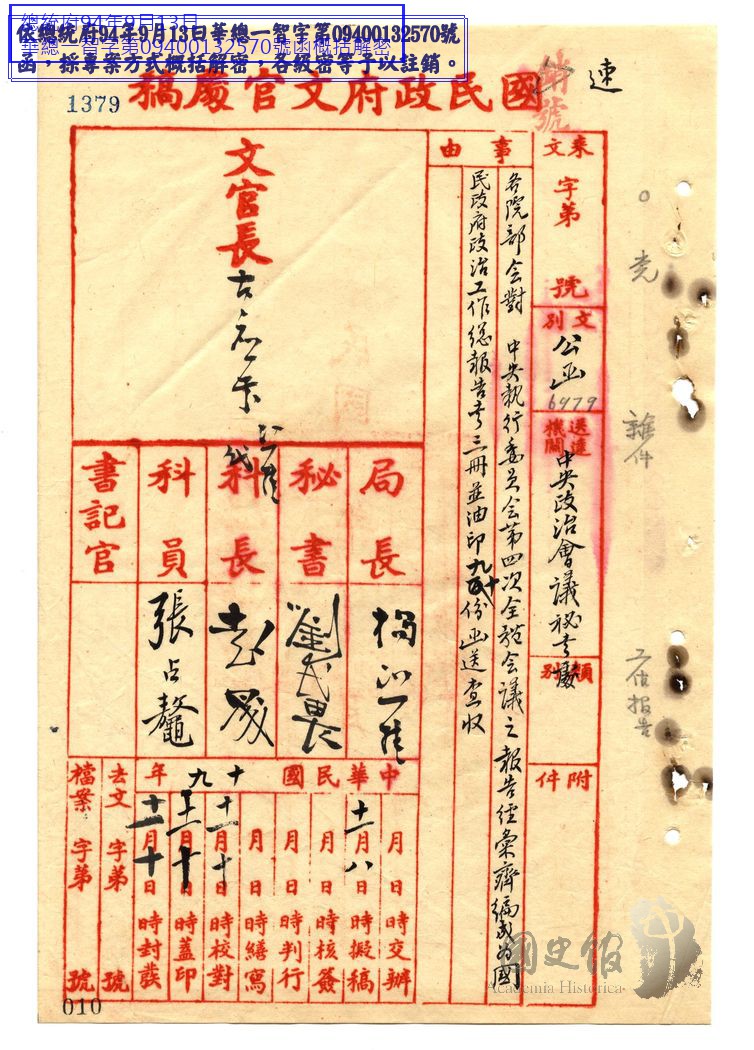 總統府94年9月13日
華總一智字第09400132570號函概括解密
依總統府94年9月13日華總一智字第09400132570號
函，採專案方式概括解密，各級密等予以註銷。
1379
國民政府文官處稿
速
號
來文
字第
號
文別
公函
6979
送達機關
中央政治會議秘書處
類別
附件
事由
各院部会對 中央執行委員会第四次全體会議之報告経彙齊編成為國
民政府政治工作総報告書三冊並油印九十份函送查收
文官長
局長
秘書
科長
科員
張占鼇
書記官
中華民國十九年
月 日 時交辦
十一月八日 時擬稿
月 日 時核簽
月 日 時判行
月 日 時繕寫
十一月十日 時校對
十一月十日 時蓋印
十一月十日 時封發
去文 字第 號
檔案 字第 號
雜件
工作報告
國史館
Academia Historica
010